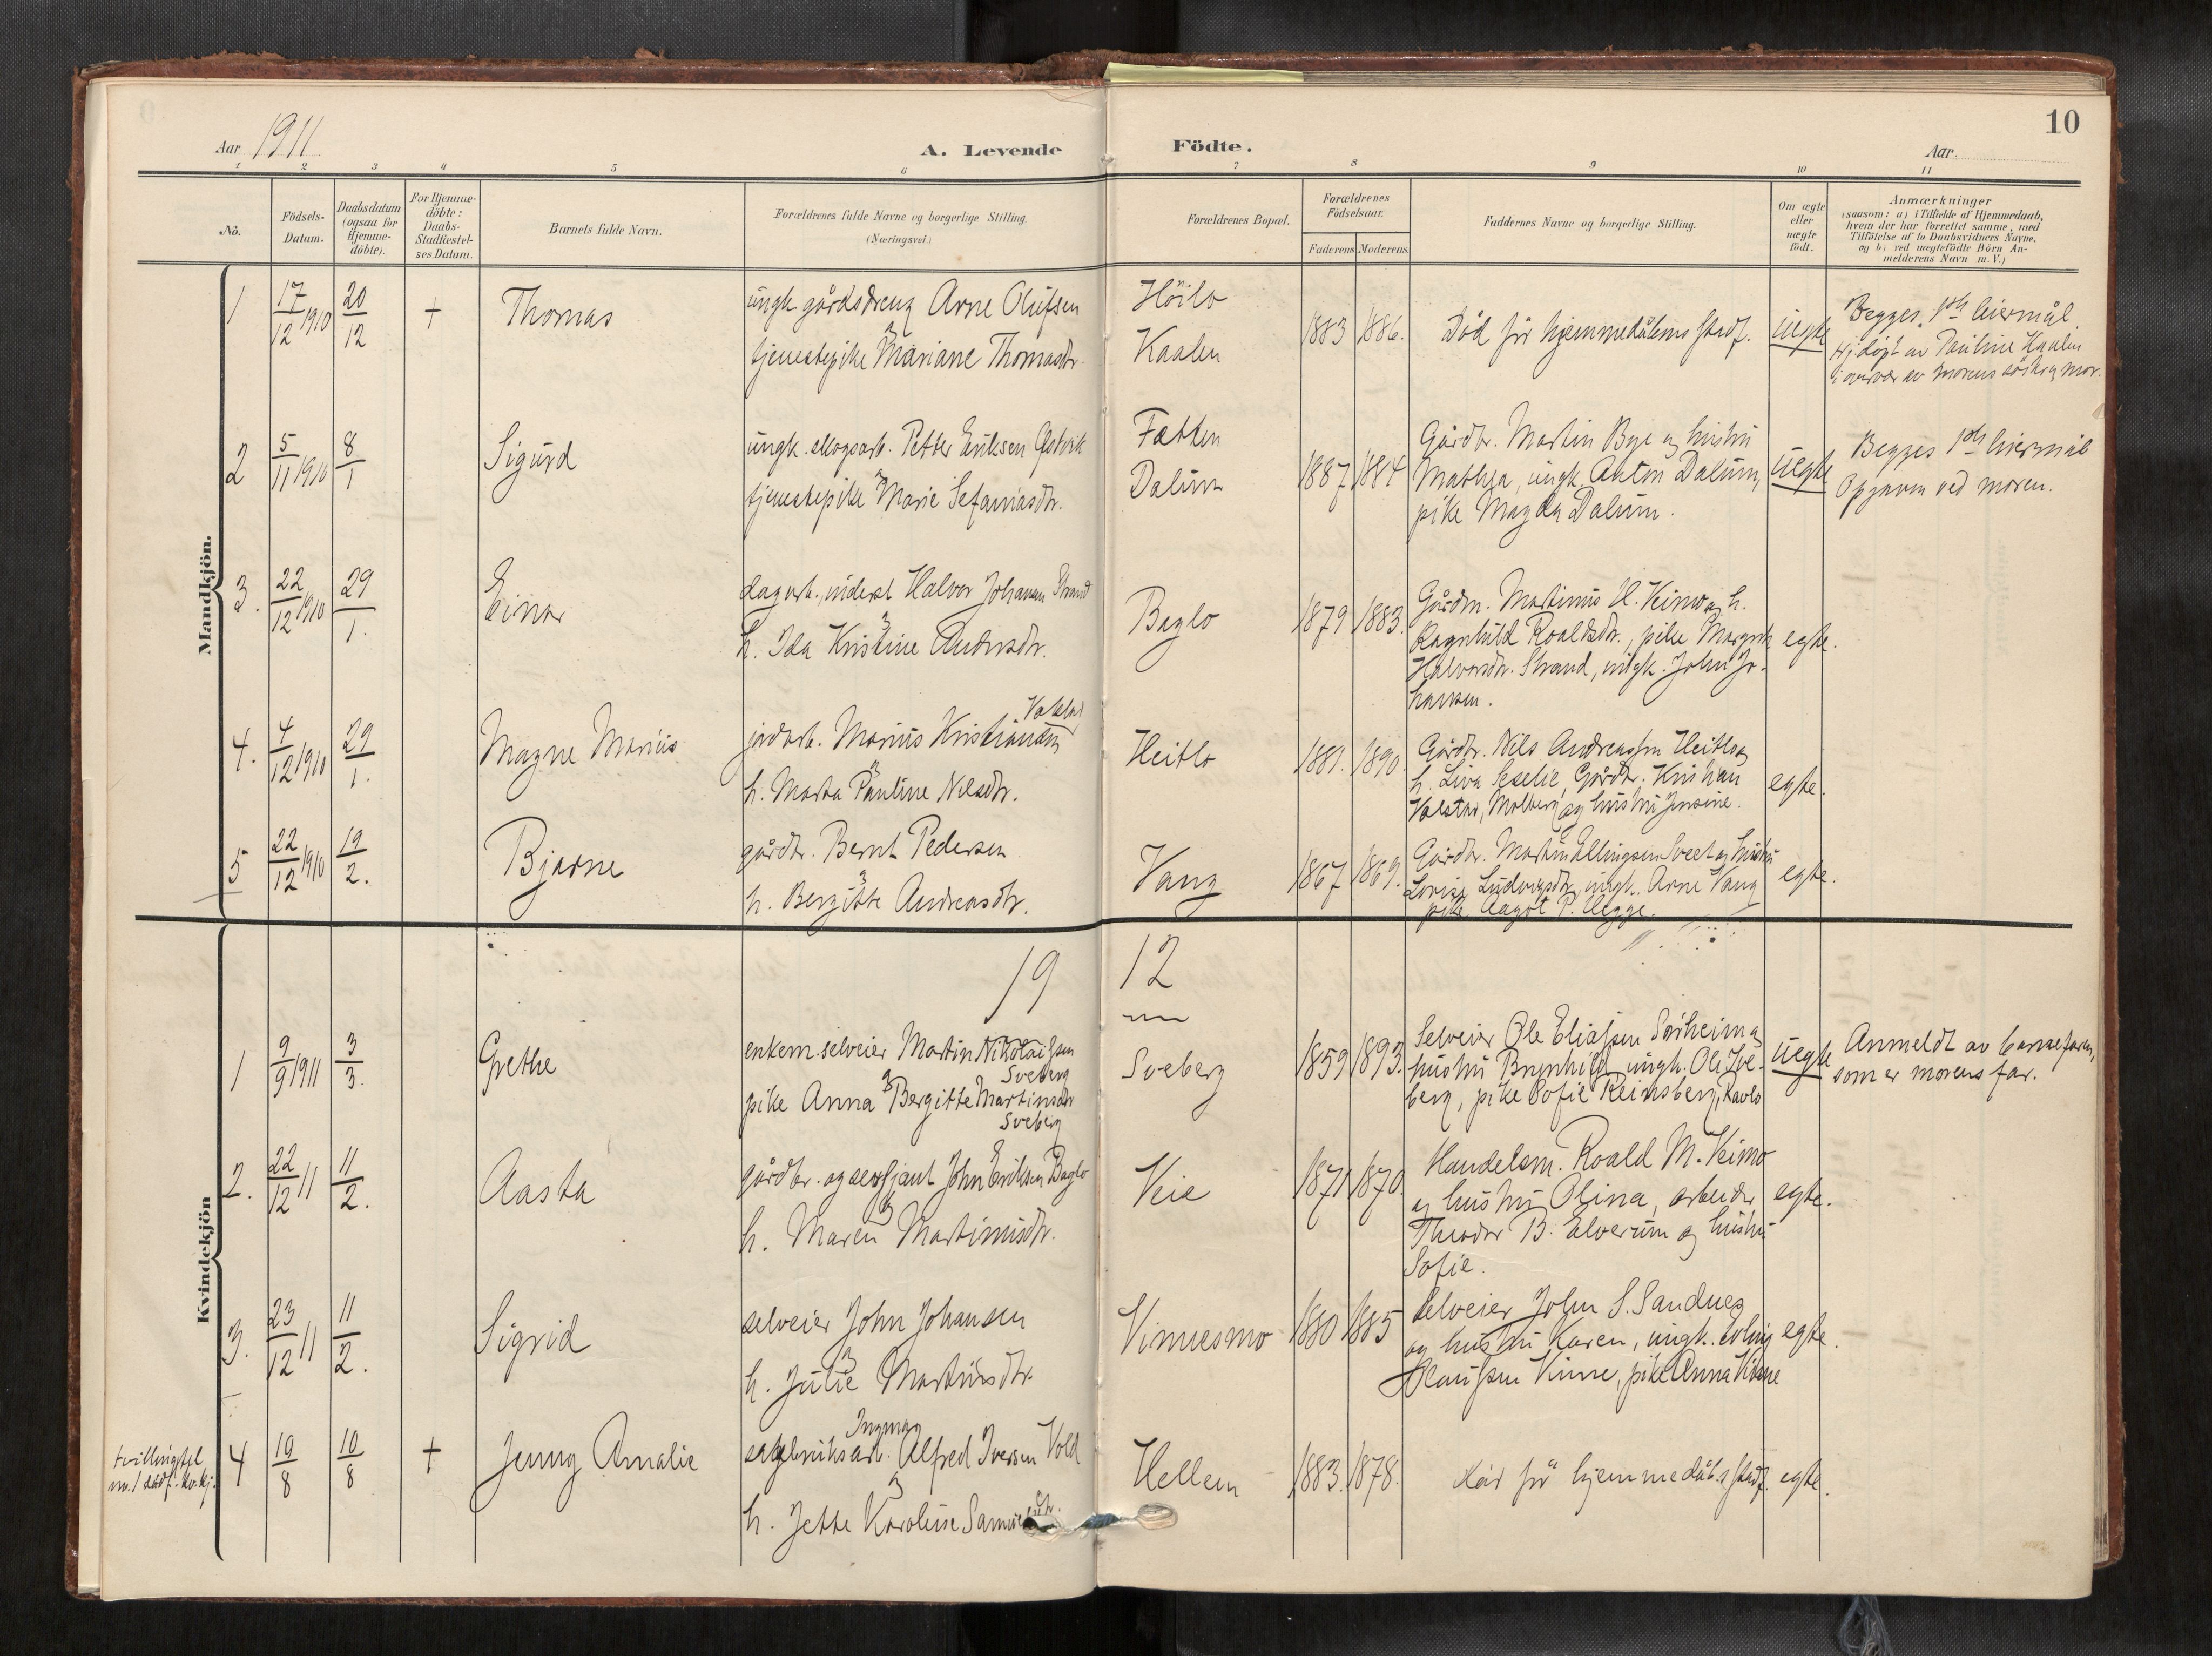 Aar 1911
A. Levende Födte.
Aar.
10
1 2 3 4 5 6 7 8 9 10 11
No.
Födsels-Datum.
Daabsdatum (ogsaa for Hjemme-döbte).
For Hjemme-döbte: Daabs-Stadfæstel-ses Datum.
Barnets fulde Navn.
Forældrenes fulde Navne og borgerlige Stilling.
(Næringsvei.)
Forældrenes Bopæl.
Forældrenes Födselsaar.
Faderens Moderens
Faddernes Navne og borgerlige Stilling.
Om ægte eller uægte födt.
Anmærkninger
(saasom: a) i Tilfælde af Hjemmedaab,
hvem der har forrettet samme, med
Tilföielse af to Daabsvidners Navne,
og b) ved uægtefödte Börn An-
melderens Navn m. V.)
Mandkjön.
1 17/12 1910 20/12 + Thomas
ungk. gårdsdreng Arne Olufsen
tjenestepike Mariane Thomasdtr.
Höilo
Kaalen
1883 1886.
Död för hjemmedåbens stadf.
uegte
Begges 1ste leiermål.
Hj.döpt av Pauline Kaalen
i overvær av morens söster og mor.
2 5/11 1910 8/1 Sigurd
ungk. skogsarb. Petter Eriksen
tjenestepike Marie Sefaniasdtr.
Fætten
Dalum
1887 1884
Gårdbr. Martin Bye og hustru
Mathea, ungk. Anton Dalum,
pike Magda Dalum.
uegte
Begges 1ste leiermål
Opgaven ved moren.
3. 22/12 1910 29/1. Einar
dagarb., inderst Halvor Johansen Strand
h. Ida Kristine Andersdtr.
Baglo
1879 1883.
Gårdm. Martinus H. Veimo og h.
Ragnhild Roaldsdtr., pike Margrete
Halvorsdtr. Strand, ungk. John Jo-
hansen.
egte.
4. 4/12 1910 29/1. Magne Marius
Valstad
jordarb. Marius Kristiansen
h. Marta Pauline Nilsdtr.
Heitlo
1881. 1890.
Gårdbr. Nils Andreassen Heitlo og
h. Liva Seselie, Gårdbr. Kristian
Valstad, Molberg og hustru Jensine.
egte.
5 22/12 1910 19/2. Bjarne
gårdbr. Bernt Pedersen
h. Bergitte Andreasdtr.
Vang
1867 1869.
Gårdbr. Martin Ellingsen Sveet og hustru
Lovise Ludvigsdtr, ungk. Arne Vang
pike Aagot P. Hegge.
egte.
19 12
Kvindekjön
1 9/9 1911 3/3. Grethe
enkem. selveier Martin Nikolaissen
Sveberg
pike Anna Bergitte Martinsdtr
Sveberg
Sveberg
1859 1893.
Selveier Ole Eliassen Sörheim og
hustru Brynhild, ungk. Ole Sve-
berg, pike Sofie Reinsberg, Ravlo
uegte
Anmeldt av barnefaren,
som er morens far.
2. 22/12 11 11/2. Aasta
gårdbr. og sersjant John Eriksen Baglo
h. Maren Martinusdtr.
Veie
1871 1870.
Handelsm. Roald M. Veimo
og hustru Olina, arbeider
Theodor B. Elverum og hustru
Sofie.
egte.
3. 23/12 11 11/2. Sigrid
selveier John Johansen
h. Julie Martinsdtr.
Vinnesmo
1880 1885
Selveier John S. Sandnes
og hustru Karen, ungk. Erling
Olaussen Vinne, pike Anna Vinne
egte.
tvilling til
no. 1 dödf. kv.kj.
4 19/8 10/8 + Jenny Amalie
Ingmar
sagbruksarb. Alfred Iversen Vold
h. Jette Karoline dtr.
Hellem
1883. 1878.
för hjemmedåb.s stadf.
egte.